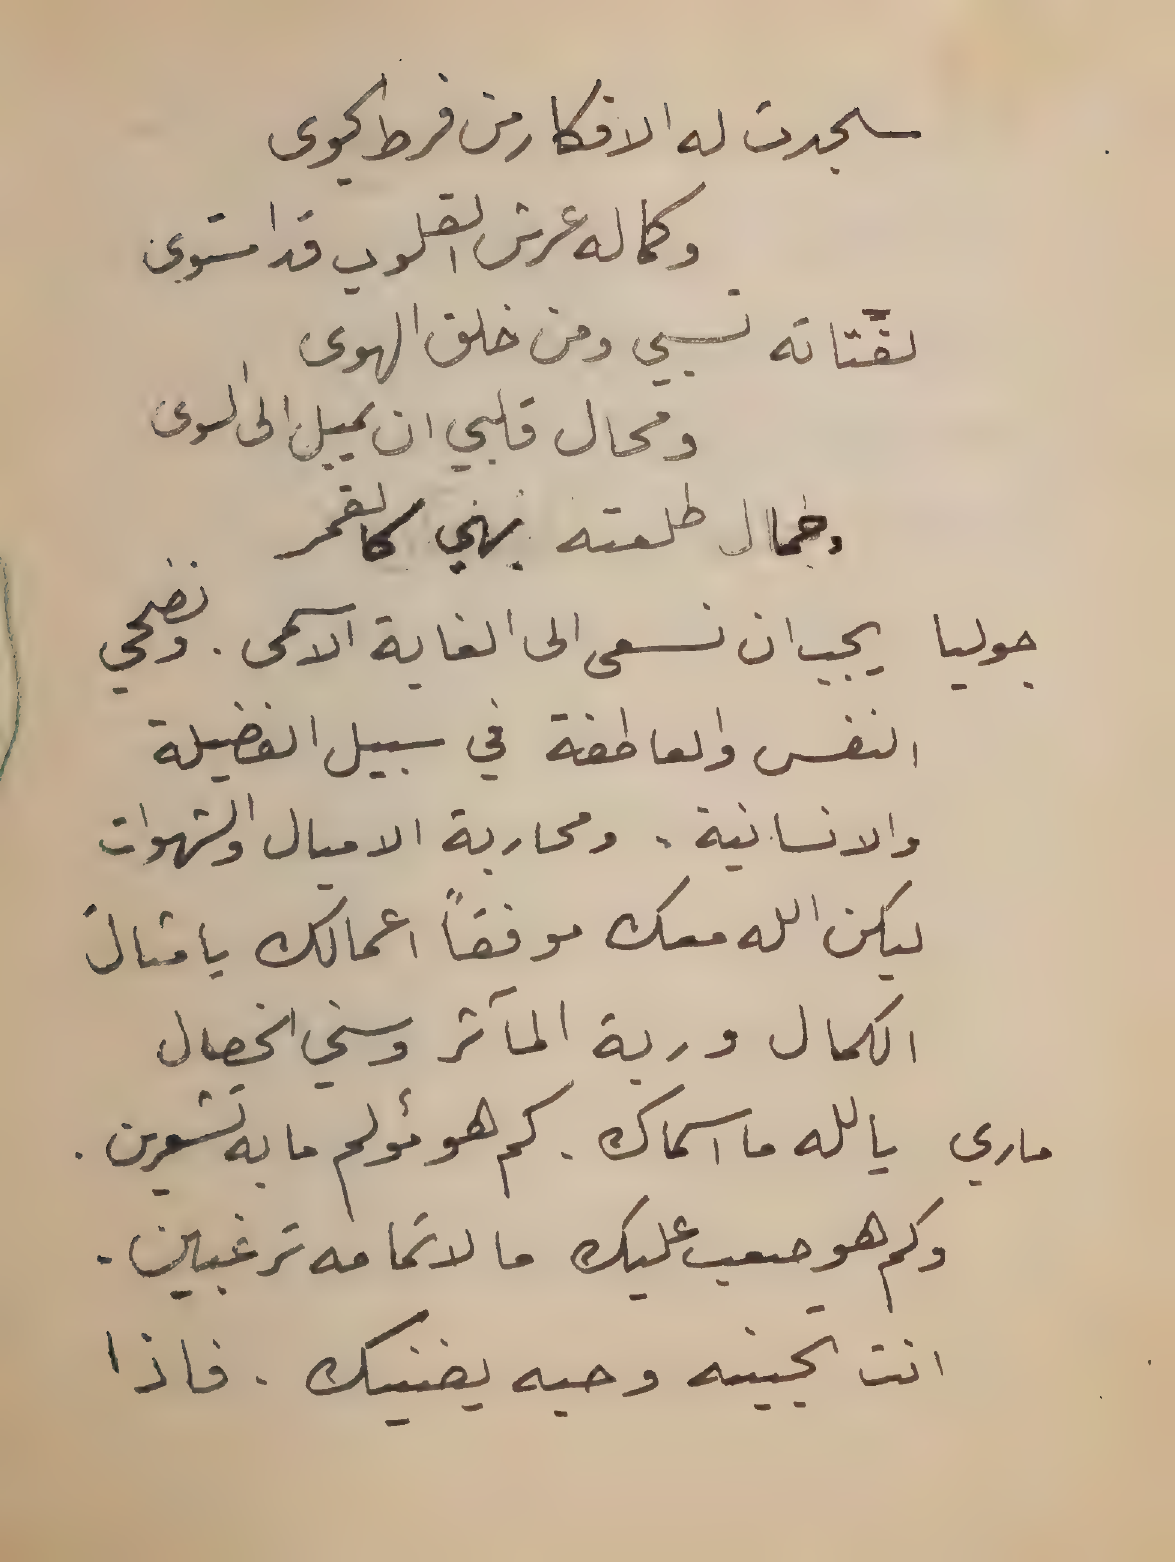 سجدت له الافكار من فرط الجوى
وكماله عرش القلوب قد استوى
لفتاته تسبي ومن خلق الهوى
ومحال قلبي ان يميل الى السوى
وجمال طلعته بهي كالقمر
جوليا يجب ان نسعى الى الغاية الاسمى . ونضحي
النفس والعاطفة في سبيل الفضيلة
والانسانية . ومحاربة الاميال والشهوات
ليكن الله معك موفقاً اعمالك يا مثال
الكمال وربة المآثر وسني الخصال
ماري يالله ما اسماك . كم هو مؤلم ما به تشعرين .
وكم هو صعب عليك ما لاتمامه ترغبين .
انت تحبينه وحبه يضنيك . فاذا